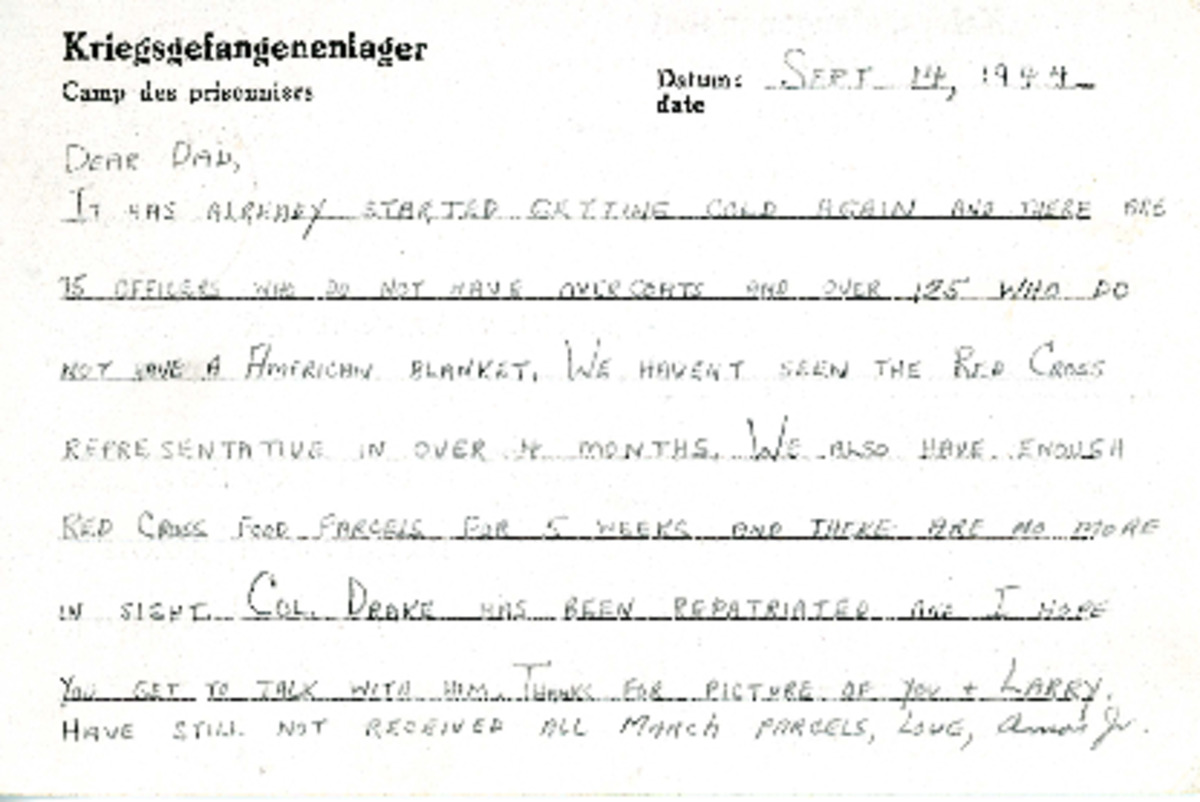 Kriegsgefangenenlager
Camp des prisonniers
Datum: SEPT 14, 1944
date
DEAR DAD,
IT HAS ALREADY STARTED GETTING COLD AGAIN AND THERE ARE
75 OFFICERS WHO DO NOT HAVE OVERCOATS AND OVER 125 WHO DO
NOT HAVE A AMERICAN BLANKET. WE HAVENT SEEN THE RED CROSS
REPRESENTATIVE IN OVER 4 MONTHS. WE ALSO HAVE ENOUGH
RED CROSS FOOD PARCELS FOR 5 WEEKS AND THERE ARE NO MORE
IN SIGHT. COL. DRAKE HAS BEEN REPATRIATED AND I HOPE
YOU GET TO TALK WITH HIM. THANKS FOR PICTURE OF YOU + LARRY.
HAVE STILL NOT RECEIVED ALL MARCH PARCELS, LOVE, Amos Jr.